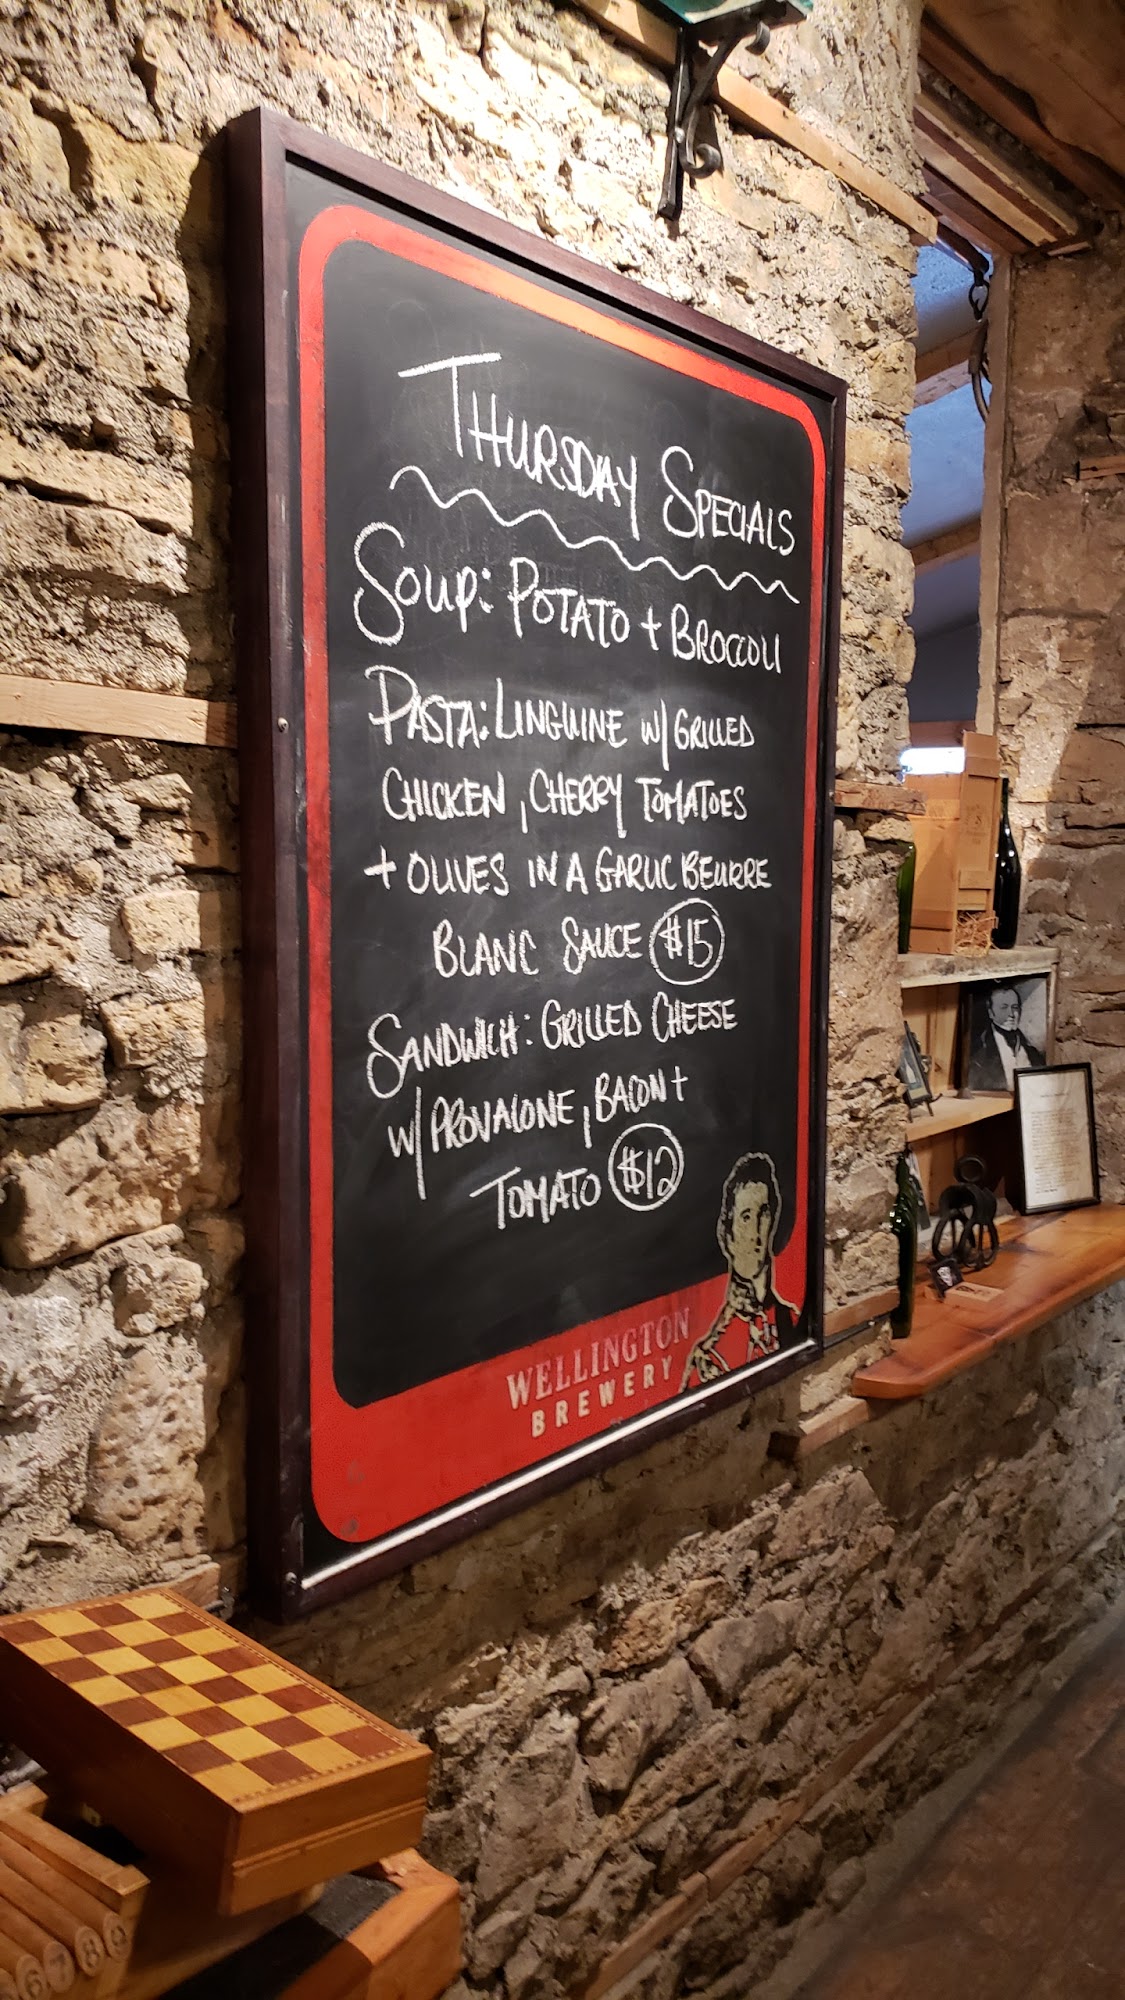 THURSDAY SPECIALS
SOUP: POTATO + BROCCOLI
PASTA: LINGUINE W/ GRILLED
CHICKEN, CHERRY TOMATOES
+ OLIVES IN A GARLIC BEURRE
BLANC SAUCE $15
SANDWICH: GRILLED CHEESE
W/ PROVALONE, BACON +
TOMATO $12
WELLINGTON
BREWERY
6 7 8 9